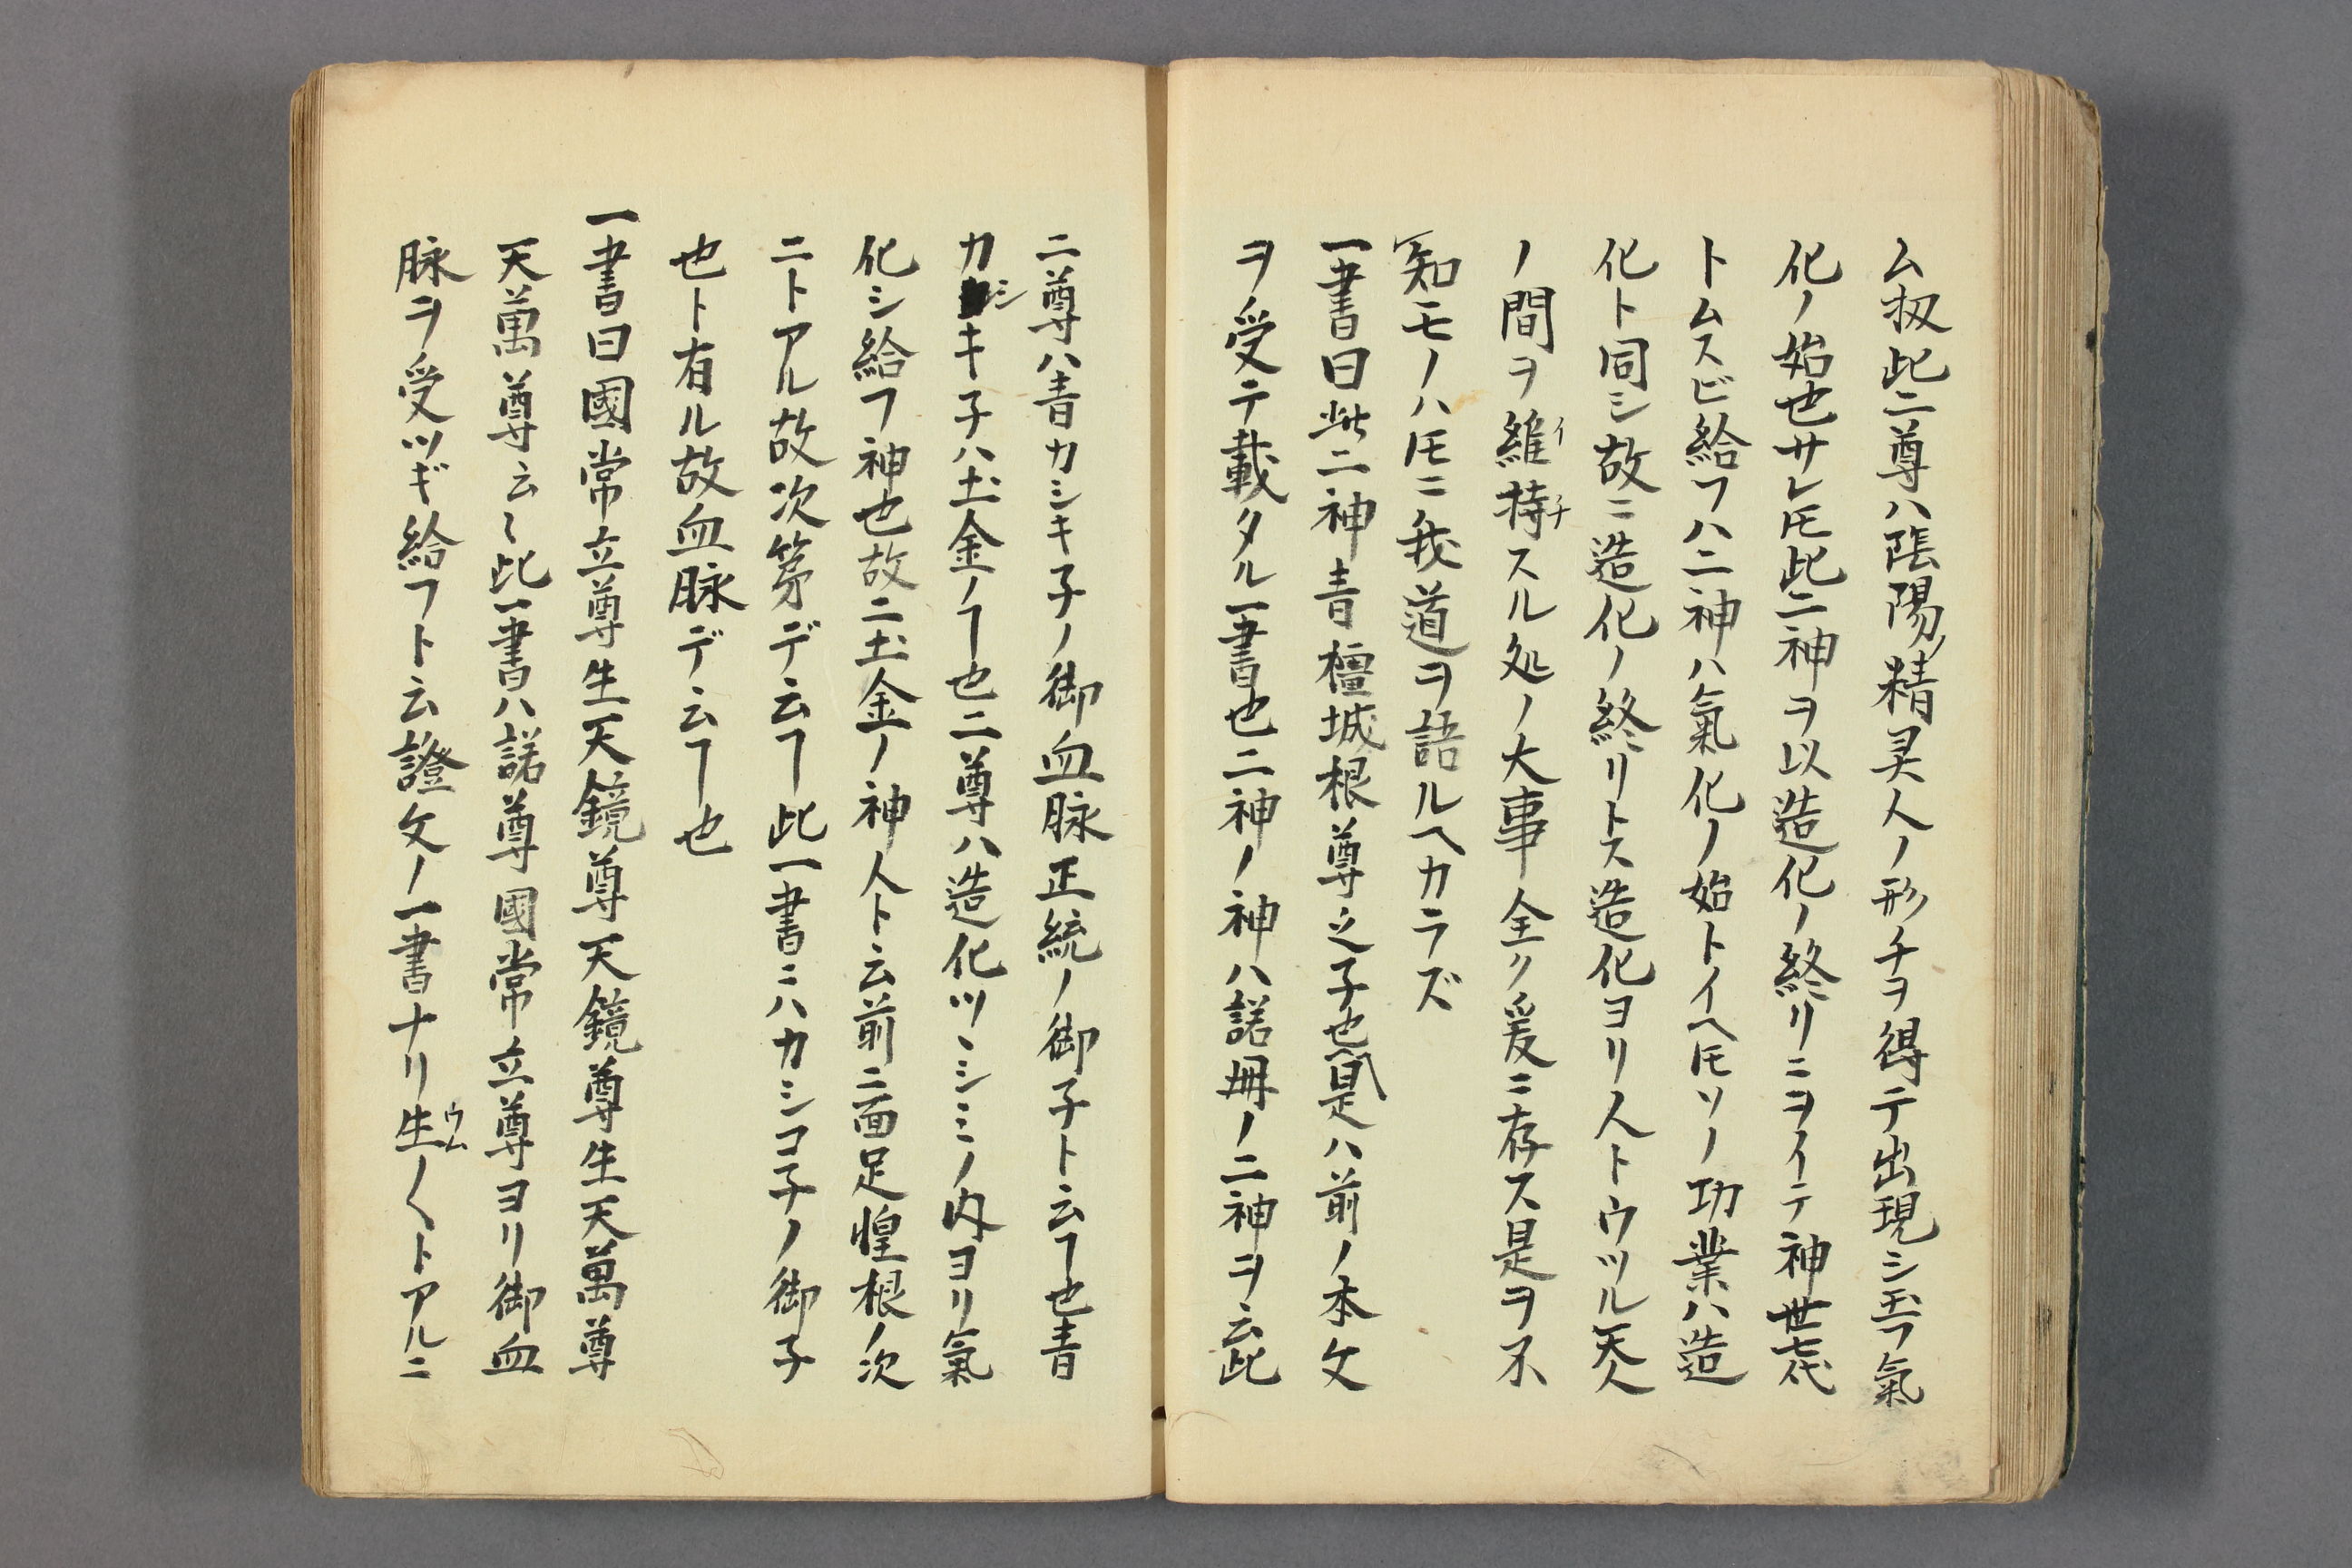 ム扨此二尊ハ陰陽ノ精灵人ノ形チヲ得テ出現シ玉フ氣
化ノ始也サレ𪜈此二神ヲ以造化ノ終リニヲイテ神世七代
トムスビ給フハ二神ハ氣化ノ始トイヘ𪜈ソノ功業ハ造
化ト同シ故ニ造化ノ終リトス造化ヨリ人トウツル天人
ノ間ヲ維持イチスル処ノ大事全ク爰ニ存ス是ヲ不
知モノハ𪜈ニ我道ヲ語ルヘカラズ
一書曰此二神青橿城根尊之子也是ハ前ノ本文
ヲ受テ載タル一書也二神ノ神ハ諾冊ノ二神ヲ云此
二尊ハ青カシキ子ノ御血脉正統ノ御子ト云ヿ也青
カシキ子ハ土金ノヿ也二尊ハ造化ツヽシミノ内ヨリ氣
化シ給フ神也故ニ土金ノ神人ト云前ニ面足惶根ノ次
ニトアル故次第デ云ヿ此一書ニハカシコ子ノ御子
也ト有ル故血脉デ云ヿ也
一書曰國常立尊生天鏡尊天鏡尊生天萬尊
天萬尊云〻此一書ハ諾尊國常立尊ヨリ御血
脉ヲ受ツギ給フト云證文ノ一書ナリ生ウム〳〵トアルニ